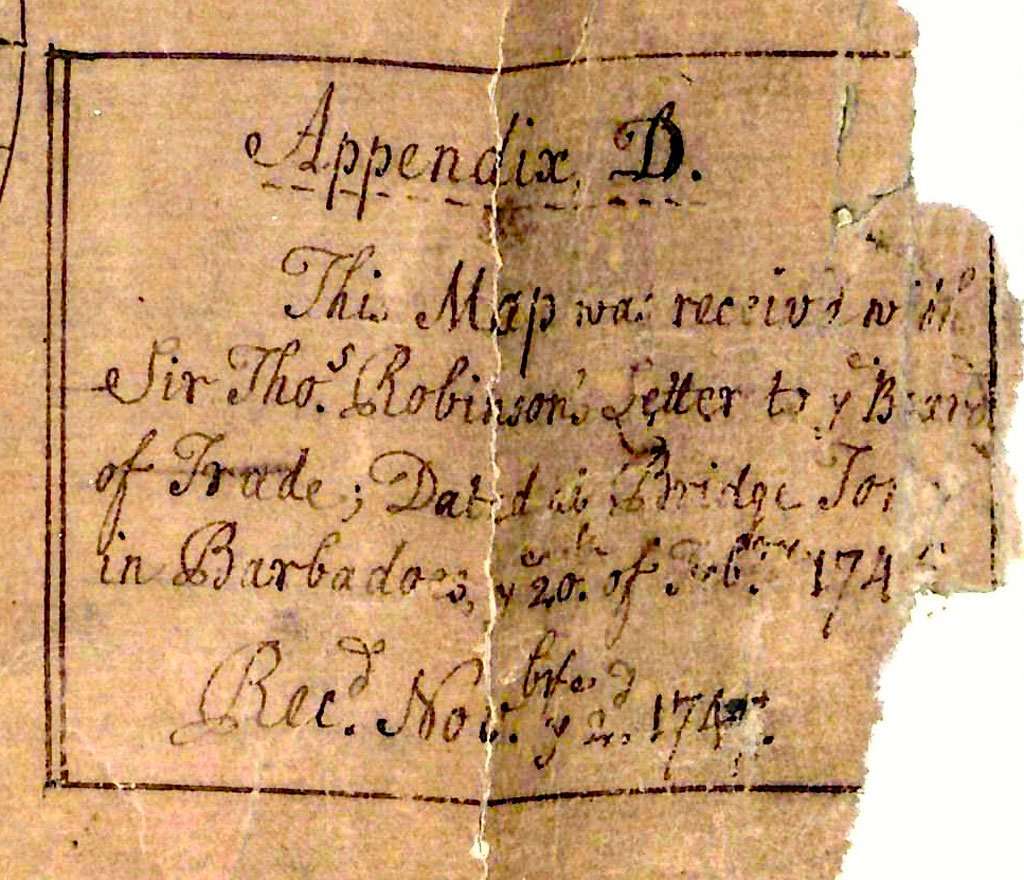 Appendix, D.
This Map was receiv'd with
Sir Tho.s Robinson's Letter to ye Board
of Trade; Dated at Bridge
in Barbadoes, ye 20.th of Feb.
Rec.d Nov.br ye 2.d